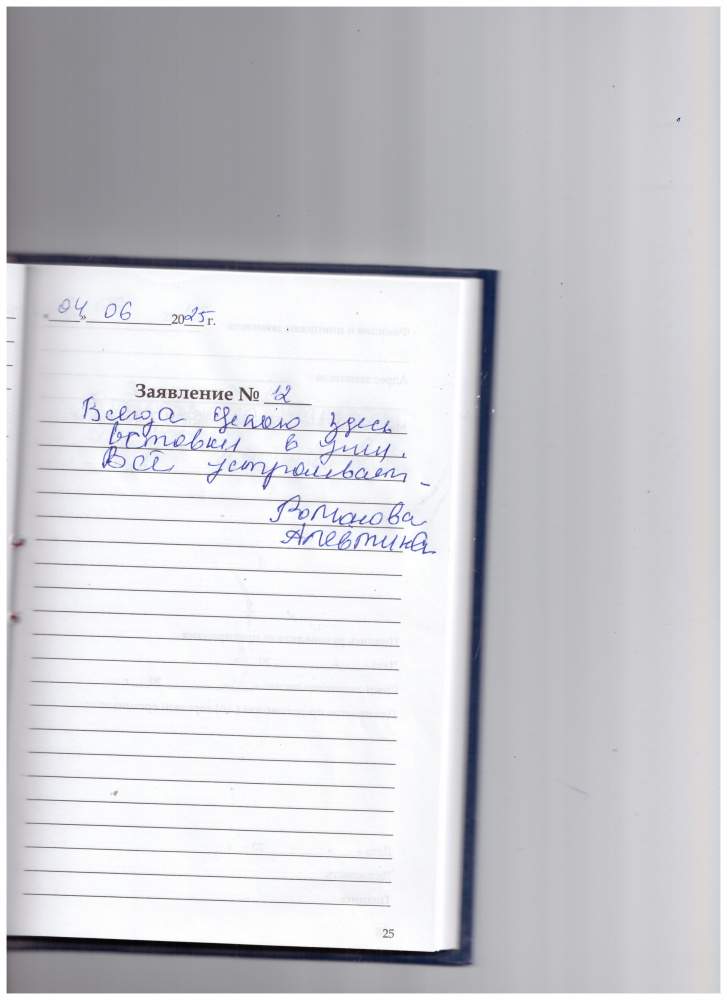 «04» 06 2025 г.
Заявление № 12
Всегда делаю здесь
вставки в уши.
Всё устраивает.
Романова
Алевтина
25